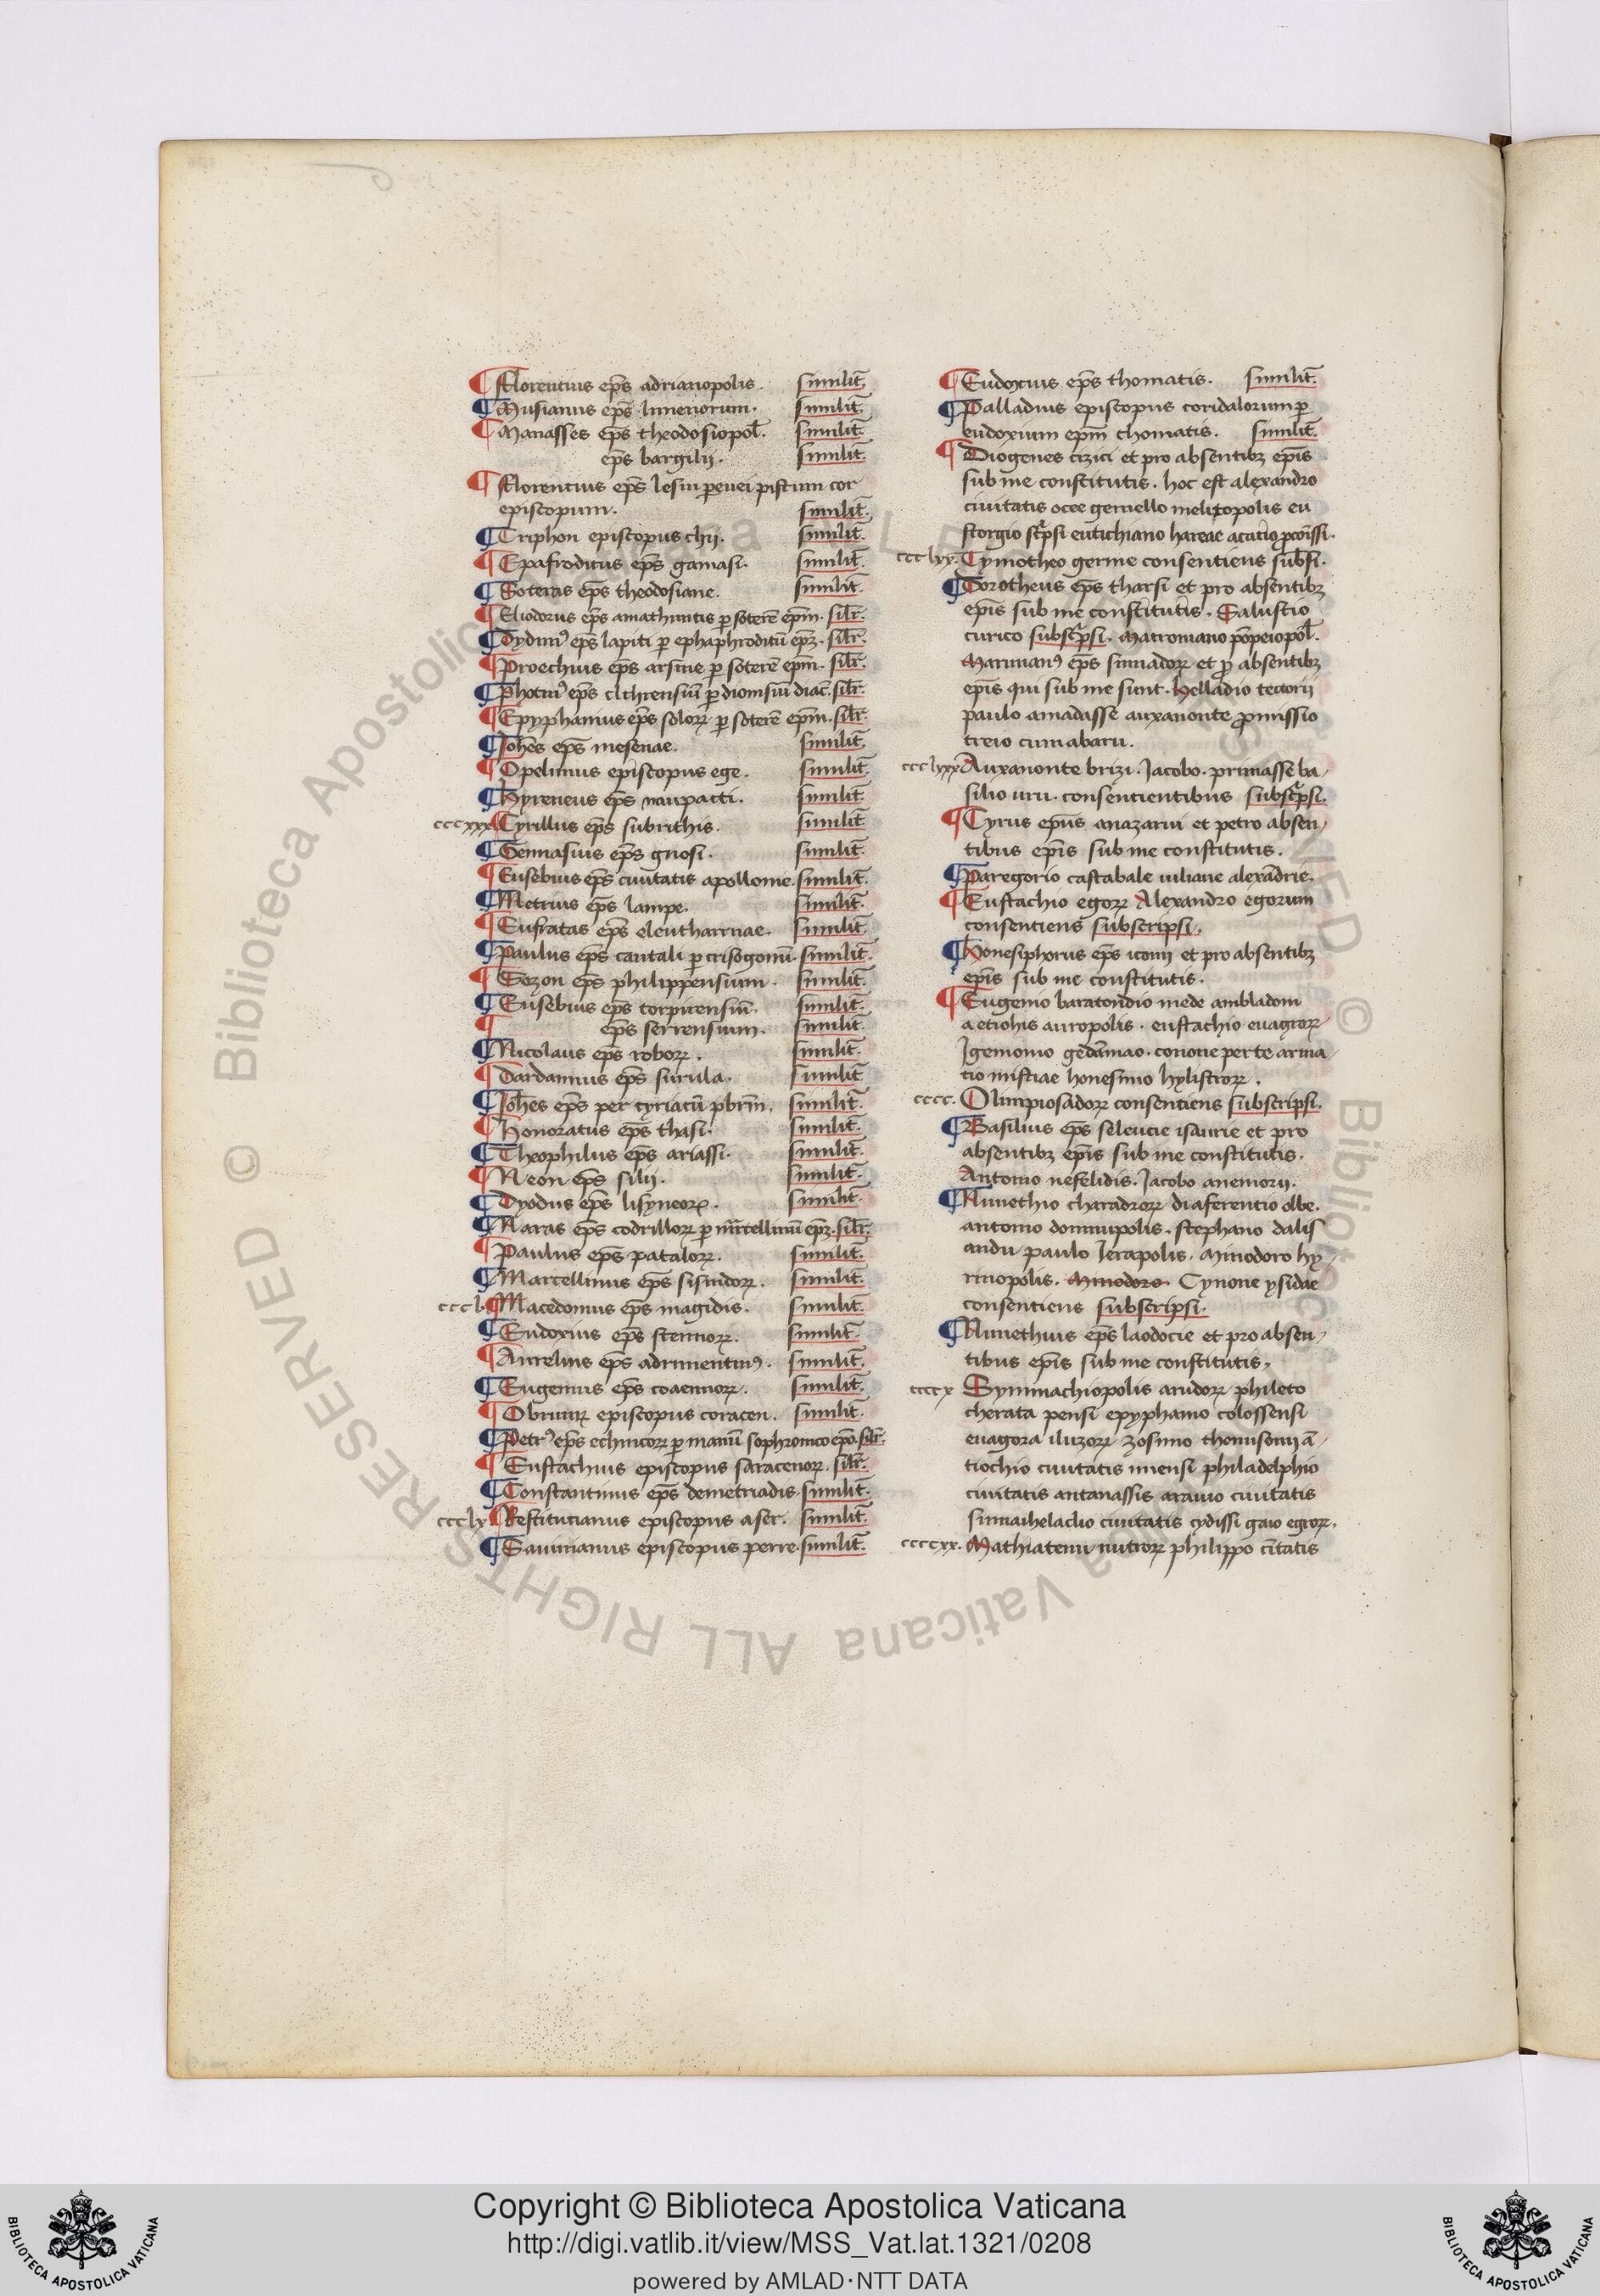 ¶ Florentius ep̄s adrianopolis. similit̄.
¶ Musianus ep̄s limenorum. similit̄.
¶ Manasses ep̄s theodosiopol̄. similit̄.
ep̄s bargilij. similit̄.
¶ Florentius ep̄s lesui peuei pistum cor
episcopum. similit̄.
¶ Triphon episcopus chij. similit̄.
¶ Epafroditus ep̄s gamasi. similit̄.
¶ Soteras ep̄s theodosiane. similit̄.
¶ Eliodorus ep̄s amathuntis p soterē ep̄m. silr̄.
¶ Dydimꝰ ep̄s lapiti p ephaphroditū ep̄ꝫ. silr̄.
¶ Proechius ep̄s arsine p soterē ep̄m. silr̄.
¶ Photinꝰ ep̄s clthrensiū p dionisiū diac̄. silr̄.
¶ Epyphanius ep̄s soloꝝ p soterē ep̄m. silr̄.
¶ Joh̄es ep̄s mesenae. similit̄.
¶ Opelimus episcopus ege. similit̄.
¶ Hyreneus ep̄s naupacti. similit̄.
cccxxx ¶ Cyrillus ep̄s subrithis. similit̄
¶ Gennasius ep̄s gnosi. similit̄.
¶ Eusebius ep̄s ciuitatis apollonie. similit̄.
¶ Metrius ep̄s lampe. similit̄.
¶ Eufratas ep̄s eleutharnae. similit̄
¶ Paulus ep̄s cantali p crisogonū. similit̄.
¶ Sozon ep̄s philippensium. similit̄.
¶ Eusebius ep̄s torpirensiū. similit̄.
¶ ep̄s serrensium. similit̄
¶ Nicolaus ep̄s roboꝝ. similit̄.
¶ Dardanius ep̄s surula. similit̄
¶ Joh̄es ep̄s per cyriacū pbrm̄. similit̄.
¶ Honoratus ep̄s thasi. similit̄.
¶ Theophilus ep̄s ariassi. similit̄.
¶ Neon ep̄s silij. similit̄.
¶ Dyodus ep̄s lisyneoꝝ. similit̄.
¶ Naras ep̄s codrilloꝝ p mr̄cellinū ep̄ꝫ. silr̄.
¶ Paulus ep̄s pataloꝝ. similit̄.
¶ Marcellinus ep̄s sisindoꝝ. similit̄.
cccl ¶ Macedonius ep̄s magidis. similit̄.
¶ Eudoxius ep̄s stennoꝝ. similit̄.
¶ Aurelius ep̄s adrumentinꝰ. similit̄.
¶ Eugenius ep̄s coaennoꝝ. similit̄.
¶ Obrimꝝ episcopus coracen. similit̄.
¶ Petrꝰ ep̄s echinicoꝝ p manū sophronico ep̄o. silr̄.
¶ Eustachius episcopus saracenoꝝ. silr̄.
¶ Constantinus ep̄s demetriadis. similit̄.
ccclx ¶ Restitucianus episcopus aser. similit̄.
¶ Sauinianus episcopus perre. similit̄.
¶ Eudoxius ep̄s thomatis. similit̄.
¶ Palladius episcopus coridalorum p
eudoxium ep̄m chomatis. similit̄.
¶ Diogenes cizici et pro absentibꝫ ep̄is
sub me constitutis. hoc est alexandro
ciuitatis ocee gemello melitopolis eu
storgio scͥpsi eutichiano hareae acacio
ccclxx. Tymotheo germe consentiens subsͥ.
¶ Torotheus ep̄s tharsi et pro absentibꝫ
ep̄is sub me constitutis. Salustio
curico subscͥpsi. Matromano pōpeiopol̄.
Marinianꝰ ep̄s sinnadoꝝ et ꝓ absentibꝫ
ep̄is qui sub me sunt. Helladio tectorij
paulo amadasse auxanonte ꝓmissio
treio cum abaru.
ccclxxx Auxanonte brizi. Jacobo. primasse ba/
silio uru. consentientibus subscͥpsi.
¶ Cyrus ep̄us anazarui et petro absen/
tibus ep̄is sub me constitutis.
¶ Paregorio castabale iuliane alexādrie.
¶ Eustachio egoꝝ Alexandro egorum
consentiens subscripsi.
¶ Honesiphorus ep̄s iconij et pro absentibꝫ
ep̄is sub me constitutis.
¶ Eugenio baratondio mede ambladom
aetiohis auropolis. eustachio euagroꝝ
Jgemonio gedamao. conone per te arma/
tio mistiae honesimo hylistroꝝ.
cccc. Olimpiosadoꝝ consentiens subscripsi.
¶ Basilius ep̄s seleucie isaurie et pro
absentibꝫ ep̄is sub me constitutis.
Antonio nefelidis. Jacobo anemorij.
¶ Nunethio charadroꝝ diaferentio olbe.
antonio domnupolis. stephano dalis
andu paulo Jerapolis. Amodoro hy/
rinopolis. Amodoro Cynone ysidae
consentiens subscripsi.
¶ Nunethius ep̄s laodocie et pro absen/
tibus ep̄is sub me constitutis.
ccccx Symmachiopolis arudoꝝ phileto
cherata pensi epyphanio colossensi
euagora iluzoꝝ zosimo themisonij ā/
tiochio ciuitatis imensi philadelphio
ciuitatis antanassis arauio ciuitatis
simai helaclio ciuitatis cydissi gaio egroꝝ.
ccccxx. Mathiatemi nutroꝝ philippo cītatis
© Biblioteca Apostolica Vaticana ALL RIGHTS RESERVED
Copyright © Biblioteca Apostolica Vaticana
http://digi.vatlib.it/view/MSS_Vat.lat.1321/0208
powered by AMLAD·NTT DATA
BIBLIOTECA APOSTOLICA VATICANA
BIBLIOTECA APOSTOLICA VATICANA